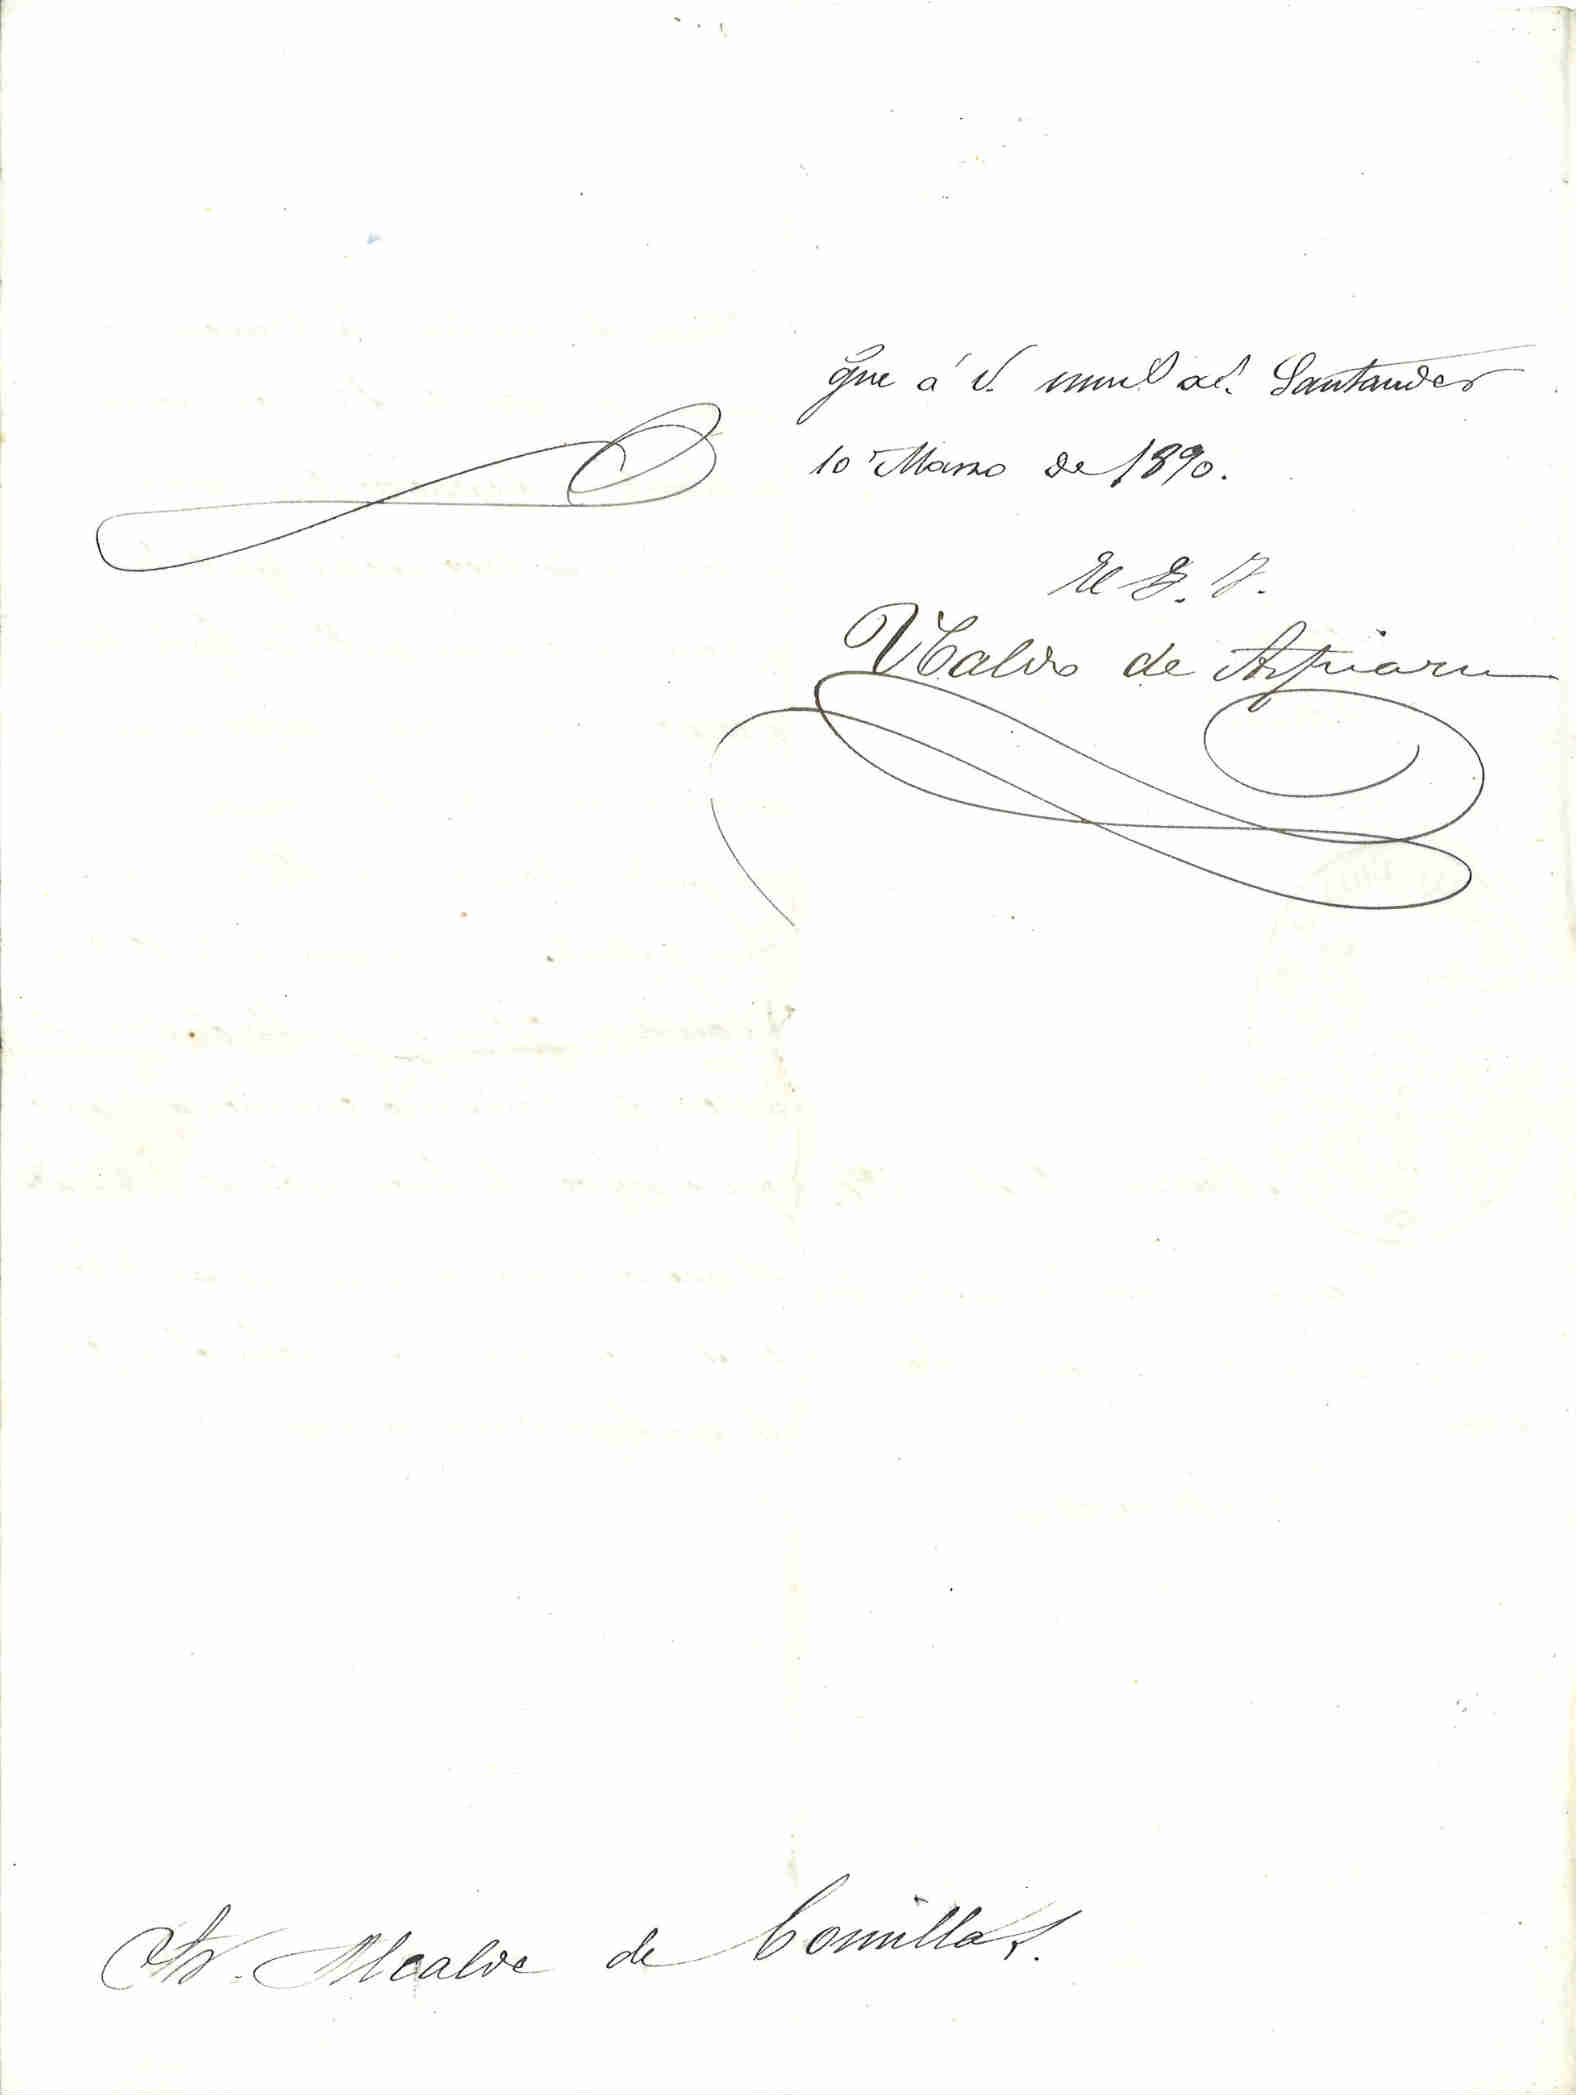 Gue á V. much as. Santander
10 Marzo de 1890.
El G. I.
Ubaldo de Azpiazu
Sr. Alcalde de Comillas.